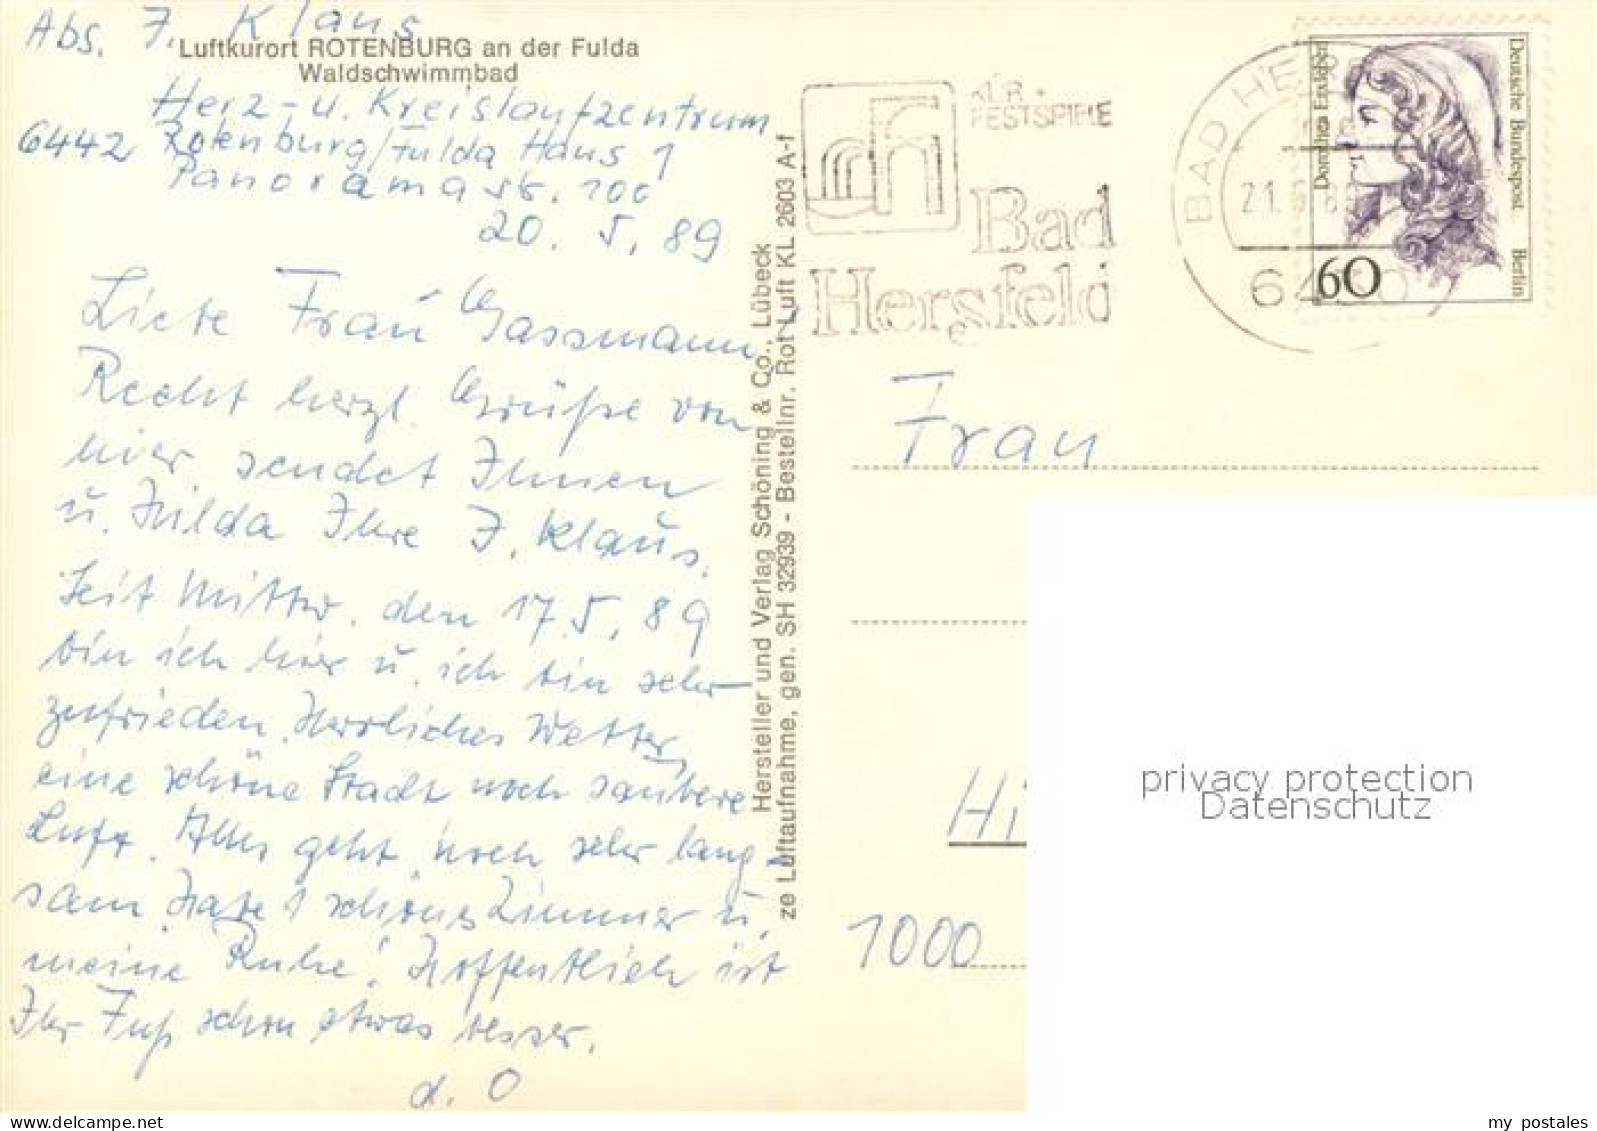 Abs. J. Klaus
Luftkurort ROTENBURG an der Fulda
Waldschwimmbad
Herz- u. Kreislaufzentrum
6442 Rotenburg/Fulda Haus 1
Panoramastr. 100
20. 5. 89
Liebe Frau Gassmann,
Recht herzl. Grüße von
hier sendet Ihnen
u. Hilda Ihre J. Klaus.
Seit Mittw. den 17.5.89
bin ich hier u. ich bin sehr
zufrieden. Herrliches Wetter,
eine schöne Stadt noch saubere
Luft. Alles geht noch sehr lang-
sam. Habe 1 schönes Zimmer u.
meine Ruhe! Hoffentlich ist
Ihr Fuß schon etwas besser.
d. O
Hersteller und Verlag Schöning & Co., Lübeck
ze Luftaufnahme, gen. SH 32939 - Bestellnr. Rot Luft KL 2603 A-f
KUR +
FESTSPIELE
Bad
Hersfeld
BAD HE
21. 5. 89
Dorothea Erxleben
Deutsche Bundespost Berlin
60
Frau
Hi
1000
privacy protection
Datenschutz
my postales